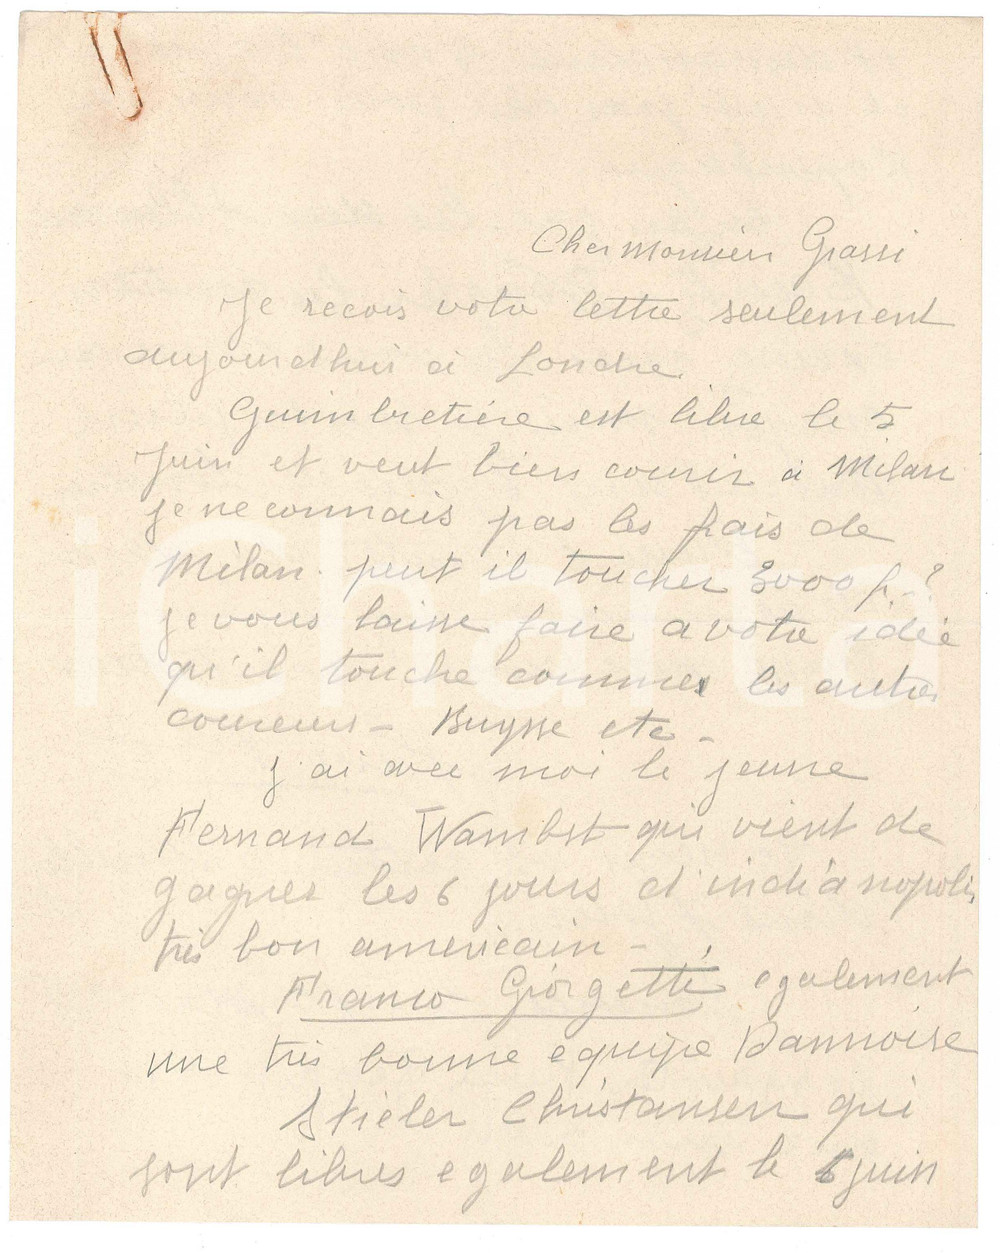 Cher Monsieur Grassi
Je recois votre lettre seulement
aujourdhui à Londre
Guimbretière est libre le 5
Juin et veut bien courir à Milan
je ne connais pas les frais de
Milan. peut il toucher 3000 f. ?
je vous laisse faire a votre idée
qu'il touche comme les autres
coureurs - Buysse etc -
J'ai avec moi le jeune
Fernand Wambst qui vient de
gagner les 6 jours d'indianopolis
très bon americain -
Franco Giorgetti egalement
une très bonne equipe Dannoise
Stieler Christansen qui
sont libres egalement le juin
iCharta